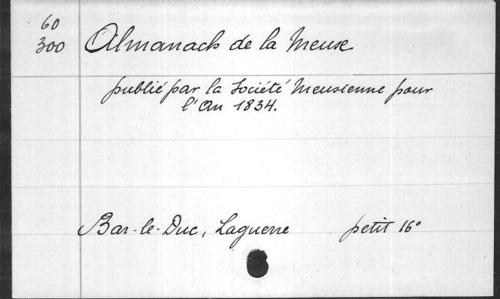 60
300 Almanach de la Meuse
publié par la Société Meusienne pour
l'An 1834.
Bar-le-Duc, Laguerre petit 16°